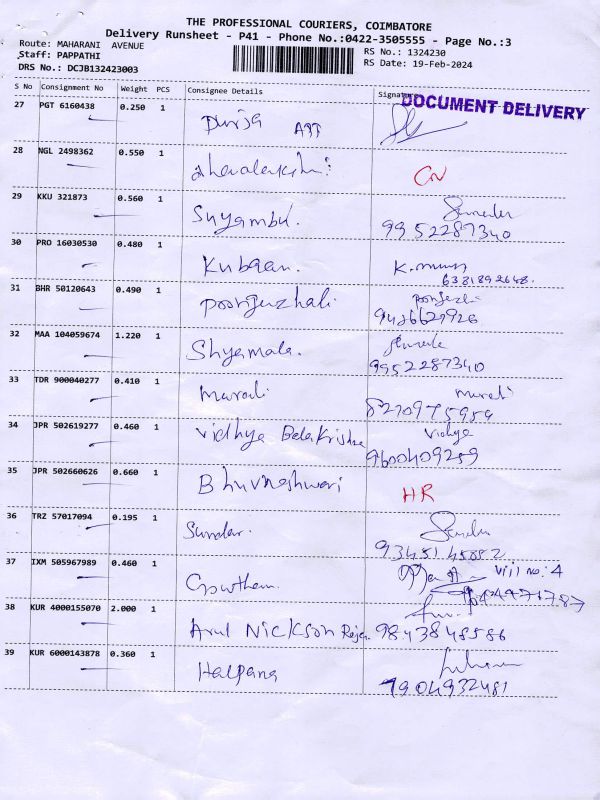 THE PROFESSIONAL COURIERS, COIMBATORE
Delivery Runsheet - P41 - Phone No.:0422-3505555 - Page No.:3
Route: MAHARANI AVENUE RS No.: 1324230
Staff: PAPPATHI RS Date: 19-Feb-2024
DRS No.: DCJB132423003
S No Consignment No Weight PCS Consignee Details Signature
DOCUMENT DELIVERY
27 PGT 6160438 0.250 1
28 NGL 2498362 0.550 1 CN
29 KKU 321873 0.560 1 Suyambu.
9952287340
30 PRO 16030530 0.480 1 K.
6381892648.
31 BHR 50120643 0.490 1 poonguzhali
32 MAA 104059674 1.220 1 Shyamala.
9952287340
33 TDR 900040277 0.410 1 murali murali
8270975959
34 JPR 502619277 0.460 1 Vidhya Balakrishna Vidhya
9600409259
35 JPR 502660626 0.660 1 Bhuvneshwari HR
36 TRZ 57017094 0.195 1 Sundar.
9345145882
37 IXM 505967989 0.460 1 Gowtham vill no.:4
38 KUR 4000155070 2.000 1 Arul Nickson Rajan 9843848586
39 KUR 6000143878 0.360 1 Halpana
7904932481